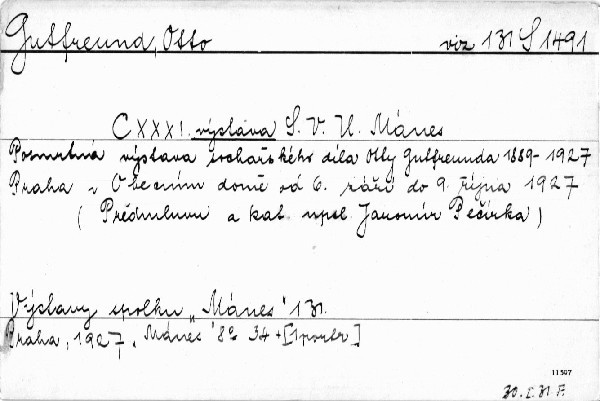 Gutfreund, Otto viz 131 S 1491
CXXXI. výstava S. V. U. Mánes
Posmrtná výstava sochařského díla Otty Gutfreunda 1889-1927
Praha v Obecním domě od 6. září do 9. října 1927
( Předmluvu a kat. upol. Jaromír Pečírka )
Výstavy spolku „Mánes" 131.
Praha, 1927, Mánes 8° 34 + [1 portr]
11597
30. I. 31 F.